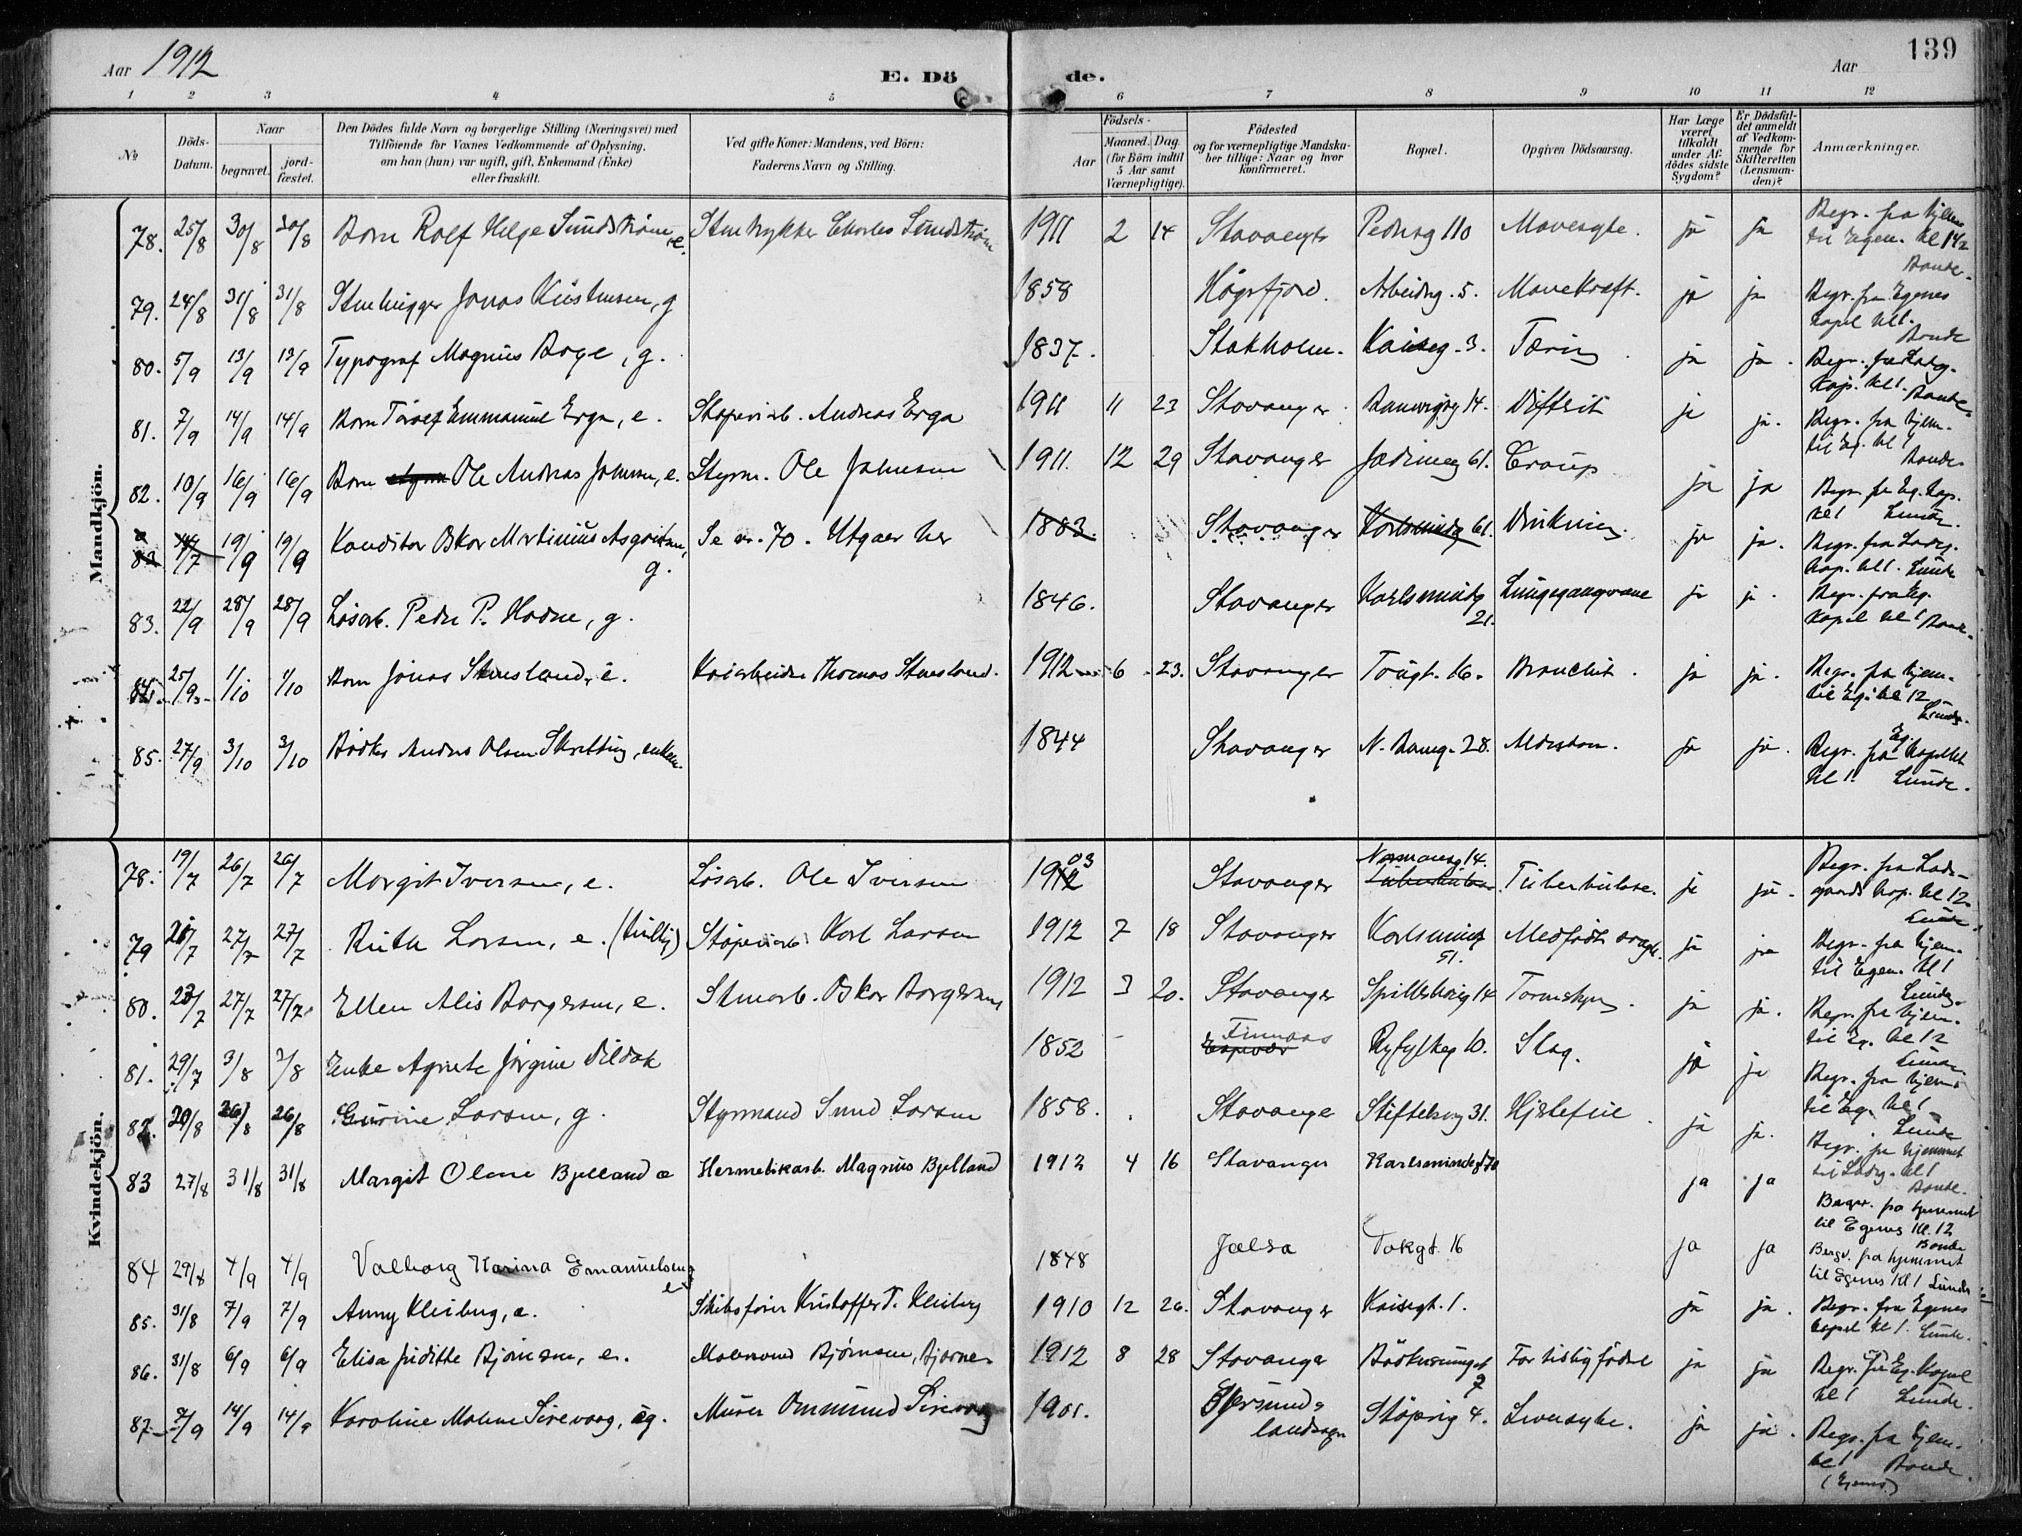 139
Aar 1912
E. Dö de.
Aar
1 2 3 4 5 6 7 8 9 10 11 12
№
Döds-Datum.
Naar
begravet.
jord-fæstet.
Den Dödes fulde Navn og borgerlige Stilling (Næringsvei) med
Tilföiende for Voxnes Vedkommende af Oplysning,
om han (hun) var ugift, gift, Enkemand (Enke)
eller fraskilt.
Ved gifte Koner: Mandens, ved Börn:
Faderens Navn og Stilling.
Födsels-
Aar
Maaned. Dag.
(for Börn indtil
5 Aar samt
Værnepligtige).
Födested
og for værnepligtige Mandska-
ber tillige: Naar og hvor
konfirmeret.
Bopæl.
Opgiven Dödsaarsag.
Har Læge
været
tilkaldt
under Af-
dödes sidste
Sygdom?
Er Dödsfal-
det anmeldt
af Vedkom-
mende for
Skifteretten
(Lensman-
den)?
Anmærkninger.
Mandkjön.
78. 25/8 30/8 30/8 Barn Rolf Helge Sundstrøm e. Stentrykker Charles Sundstrøm 1911 2 14 Stavanger Pedersg 110 Mavesyke. ja ja Begr. fra hjem
til Egen. kl 1 1/2
Bonde.
79. 24/8 31/8 31/8 Stenhugger Jonas Kristensen, g 1858 Høgsfjord. Arbeidsg. 5. Mavekræft. ja ja Begr. fra Egenes
kapel kl 1.
Bonde
80. 5/9 13/9 13/9 Typograf Magnus Borge, g. 1837. Stokholm. Kaiseg. 3. Tæring ja ja. Begr. fra Ladeg.
Kap. kl 1. Bonde.
81. 7/9 14/9 14/9 Barn Emmanuel Erga, e. Støperiarb. Andreas Erga 1911 11 23 Stavanger 14. Difterit ja ja. Begr. fra hjem-
til Eg. kl 1
Bonde
82. 10/9 16/9 16/9 Barn Ole Andreas Johnsen, e. Styrm. Ole Johnsen 1911. 12 29 Stavanger Jæderveg 61. Croup ja ja Begr. fra Eg. kap.
kl 1 Lunde.
19/9 19/9 Konditor Oskar Martinius Asgautsen, g. Se nr. 70. Utgaar her 1883. Stavanger Karlsmindeg 61. Drukning. ja ja. Begr. fra Ladeg.
kap. kl 1. Lunde
83. 22/9 28/9 28/9 Løsarb. Peder P. Hodne, g. 1846. Stavanger Karlsmindeg
21. ja ja. Begr. fra Eg.
kapel kl 1 Bonde.
84. 25/9 1/10 1/10 Barn Jonas Stensland, e. Kaiarbeider Thomas Stensland. 1912 6 23. Stavanger 16. Bronchit. ja ja. Begr. fra hjem-
til Eg. kl 12
Lunde.
85. 27/9 3/10 3/10 Bødker Anders Olsen Skretting, enkem. 1844 Stavanger N. Baneg. 28. Alderdom. ja ja. Begr. fra Eg. kapellet
kl 1. Lunde.
Kvindekjön.
78. 19/7 26/7 26/7 Margit Iversen, e. Løsarb. Ole Iversen 1903 Stavanger Normansg 14. Tuberkulose. ja ja. Begr. fra Lade-
gaards kap. kl 12
Lunde.
79 27/7 27/7 Ruth Larsen, e. (tvilling) Støperiarb. Karl Larsen 1912 7 18 Stavanger Karlsmindeg
51. Medfødt svagh. ja ja Begr. fra hjem-
til Egen. kl 1
Lunde.
80. 23/7 27/7 27/7 Ellen Alis Borgersen, e. Stenarb. Oskar Borgersen 1912 3 20. Stavanger 14 ja ja. Begr. fra hjem-
til Eg. kl 12
Lunde.
81. 29/7 3/8 3/8 Enke Agnete Jørgine Vildak 1852 Finnaas Ryfylkeg 10. Slag. ja ja Begr. fra hjem-
til Eg. kl 1
Lunde
82. 20/8 26/8 26/8 Gurine Larsen, g. Styrmand Svend Larsen 1858. Stavanger Stiftelseg 31. Hjertefeil. ja ja. Begr. fra hjemmet
til Ladeg. kl 1
Bonde.
83 27/8 31/8 31/8 Margit Olene Bjelland e Hermetikarb. Magnus Bjelland 1912 4 16 Stavanger Karlsmindegt 70 ja ja Begr. fra hjemmet
til Egenes Kl. 12
Bonde
84 29/8 4/9 4/9 Valborg Karina Emanuelsen 1848 Jælsa Vakgt. 16 ja ja Begr. fra hjemmet
til Egenes Kl 1 Lunde
85. 31/8 7/9 7/9 Anny Kleiberg, e. Skibsfører Kristoffer T. Kleiberg 1910 12 26. Stavanger Kaisegt. 1. ja ja. Begr. fra Egenes
kapel kl 1. Lunde.
86. 31/8 6/9 6/9 Elisa Juditte Bjørnsen, e. Bjørnsen, Bjarne 1912 8 28 Stavanger For tidlig født ja ja Begr. fra Eg. kapel
kl 1 Lunde.
87. 7/9 14/9 14/9 Karoline Malene Sirevaag, ug. Murer Ommund Sirevaag 1901. Egersunds
landsogn Støperig 4. Leversyke. ja ja. Begr. fra hjem-
kl 1 Bonde
(Egenes)